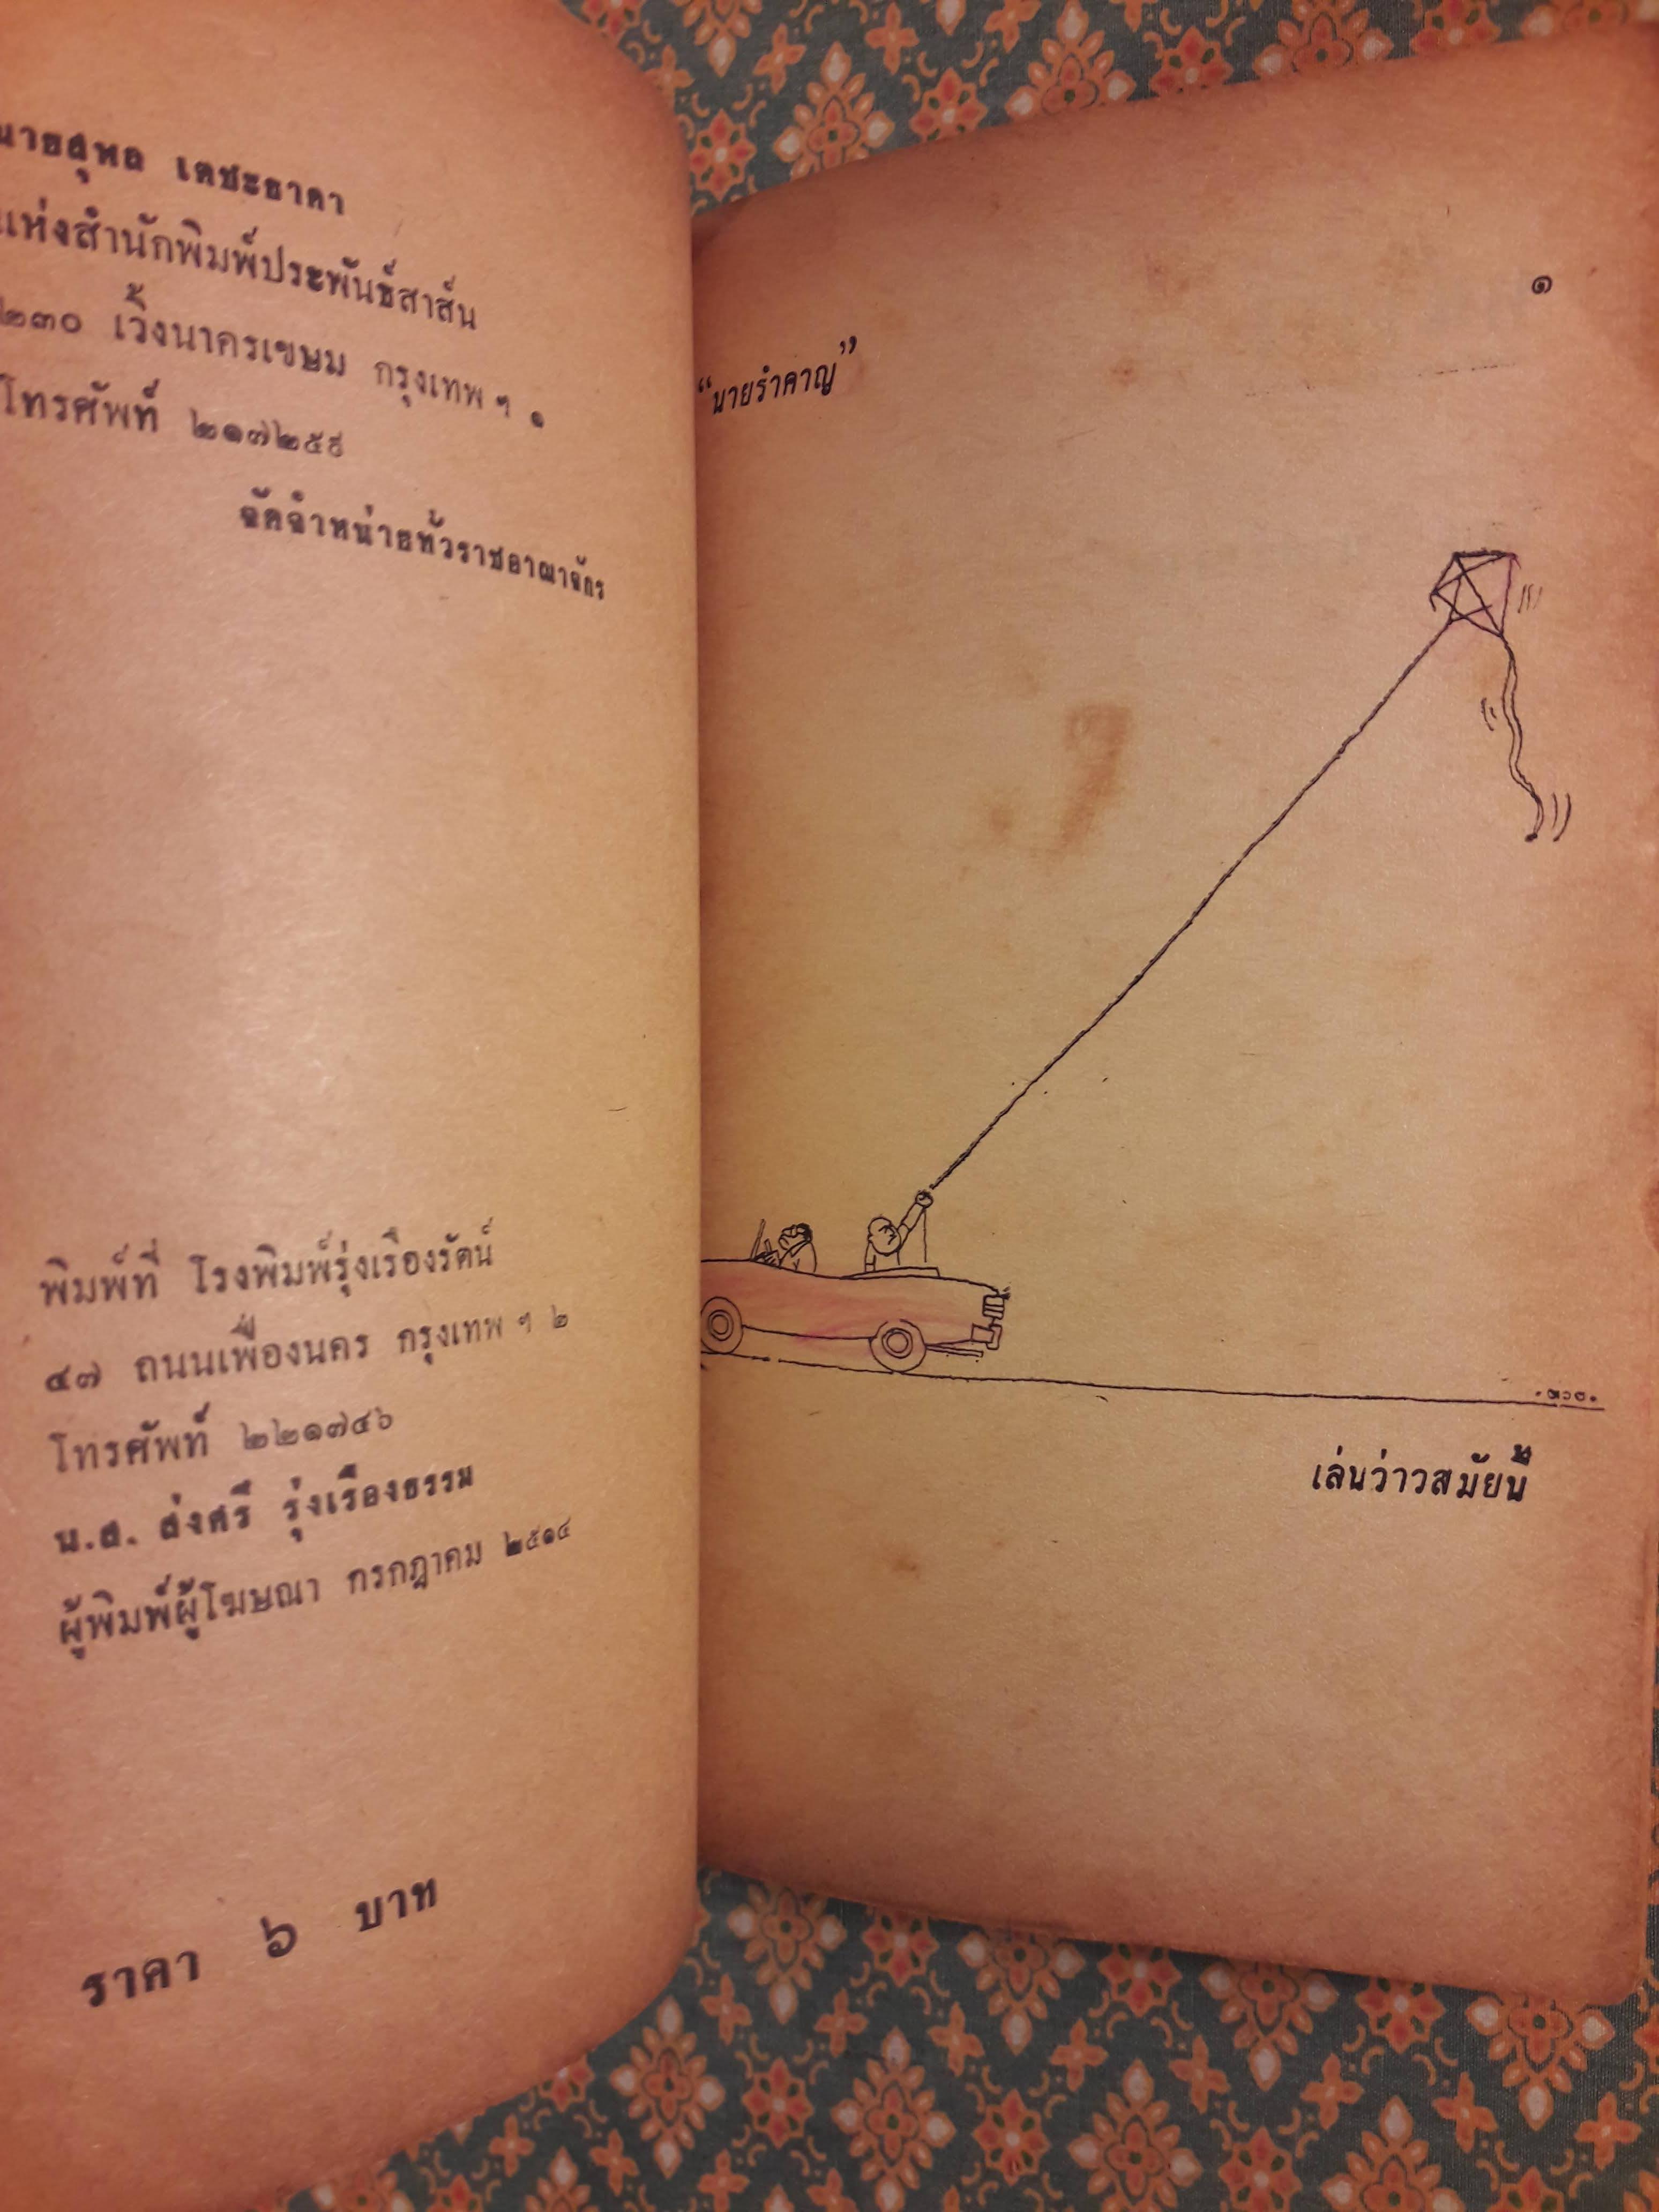 นายสุพล เตชะธาดา
แห่งสำนักพิมพ์ประพันธ์สาส์น
๒๓๐ เวิ้งนาครเขษม กรุงเทพ ฯ ๑
โทรศัพท์ ๒๑๗๒๕๘
จัดจำหน่ายทั่วราชอาณาจักร
พิมพ์ที่ โรงพิมพ์รุ่งเรืองรัตน์
๔๗ ถนนเฟื่องนคร กรุงเทพ ฯ ๒
โทรศัพท์ ๒๒๑๗๔๖
น.ส. ส่งศรี รุ่งเรืองธรรม
ผู้พิมพ์ผู้โฆษณา กรกฎาคม ๒๕๑๔
ราคา ๖ บาท
๑
“นายรำคาญ”
เล่นว่าวสมัยนี้